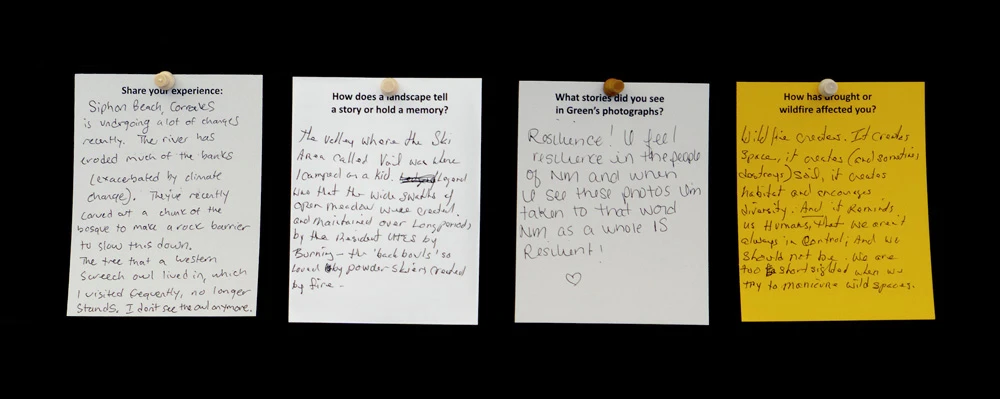 Share your experience:
Siphon Beach, Corrales
is undergoing a lot of changes
recently. The river has
eroded much of the banks
(exacerbated by climate
change). They've recently
carved out a chunk of the
bosque to make a rock barrier
to slow this down.
The tree that a western
Screech owl lived in, which
I visited frequently, no longer
stands. I don't see the owl anymore.
How does a landscape tell
a story or hold a memory?
the valley where the Ski
Area called Vail was where
I camped as a kid. Legend
was that the wide swaths of
open meadow were created
and maintained over long periods
by the resident UTES by
Burning - the 'back bowls' so
loved by powder skiers created
by fire -
What stories did you see
in Green's photographs?
Resilience! I feel
resilience in the people
of NM and when
I see these photos I'm
taken to that word
NM as a whole IS
Resilient!
How has drought or
wildfire affected you?
Wildfire creates. It creates
space, it creates (and sometimes
destroys) soil, it creates
habitat and encourages
diversity. And it reminds
us Humans, that we aren't
always in Control; And we
should not be. We are
too shortsighted when we
try to manicure wild spaces.